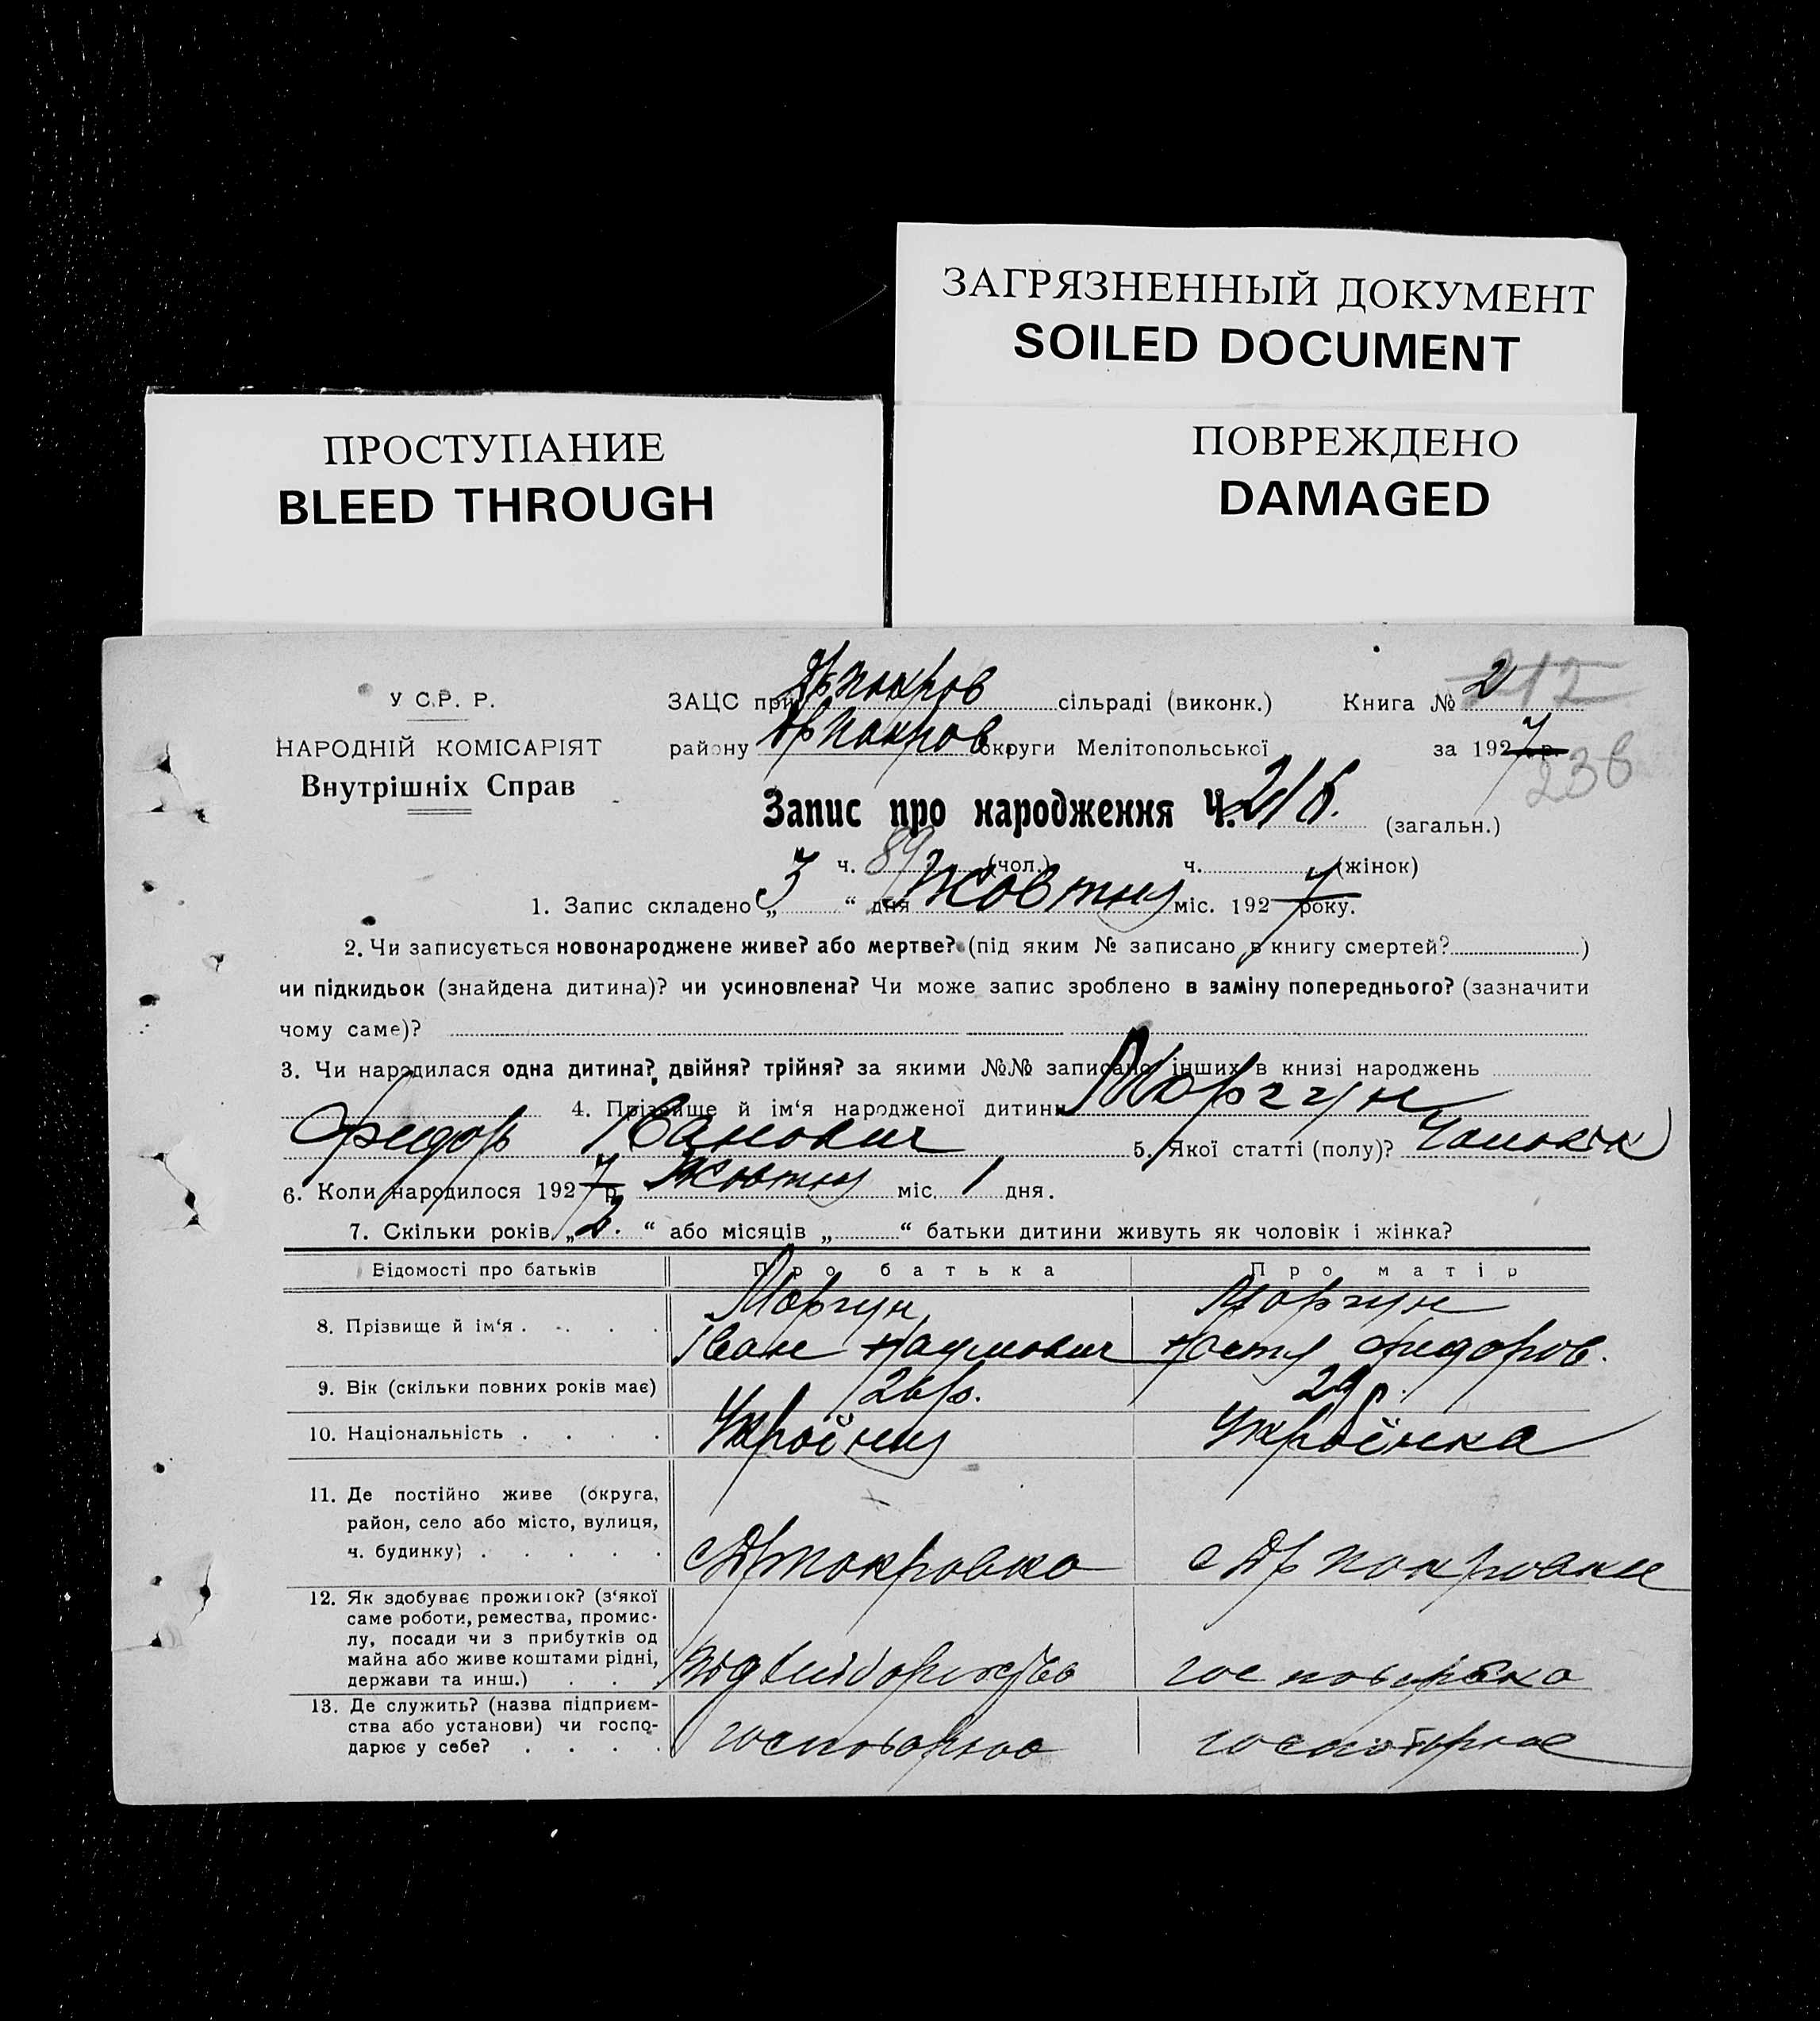 ЗАГРЯЗНЕННЫЙ ДОКУМЕНТ
SOILED DOCUMENT
ПРОСТУПАНИЕ
BLEED THROUGH
ПОВРЕЖДЕНО
DAMAGED
У С.Р. Р.
НАРОДНІЙ КОМІСАРІЯТ
Внутрішніх Справ
ЗАЦС при Др покров сільраді (виконк.) Книга № 2 212
району Др Покров округи Мелітопольської за 1927 р. 236
Запис про народження Ч. 215. (загальн.)
ч. 89 (чол.) ч. (жінок)
1. Запис складено „ 3 “ дня Жовтня міс. 1927 року.
2. Чи записується новонароджене живе? або мертве? (під яким № записано в книгу смертей? )
чи підкидьок (знайдена дитина)? чи усиновлена? Чи може запис зроблено в заміну попереднього? (зазначити
чому саме)?
3. Чи народилася одна дитина? двійня? трійня? за якими №№ записано інших в книзі народжень
4. Прізвище й ім‘я народженої дитини Моргун
Федор Іванович 5. Якої статті (полу)? Чоловік
6. Коли народилося 1927 р. Жовтня міс. 1 дня.
7. Скільки років „ 2. “ або місяців „ “ батьки дитини живуть як чоловік і жінка?
Відомості про батьків Про батька Про матір
8. Прізвище й ім‘я . . . . . Моргун Моргун
Іван Наумович Настя Федоров.
9. Вік (скільки повних років має) 26 р. 29 р.
10. Національність . . . . Українец Українка
11. Де постійно живе (округа,
район, село або місто, вулиця,
ч. будинку) . . . . . с Др покровка с Др покровка
12. Як здобуває прожиток? (з‘якої
саме роботи, ремества, промис-
лу, посади чи з прибутків од
майна або живе коштами рідні,
держави та инш.) . . .
13. Де служить? (назва підприєм-
ства або установи) чи госпо-
дарює у себе? . . . .